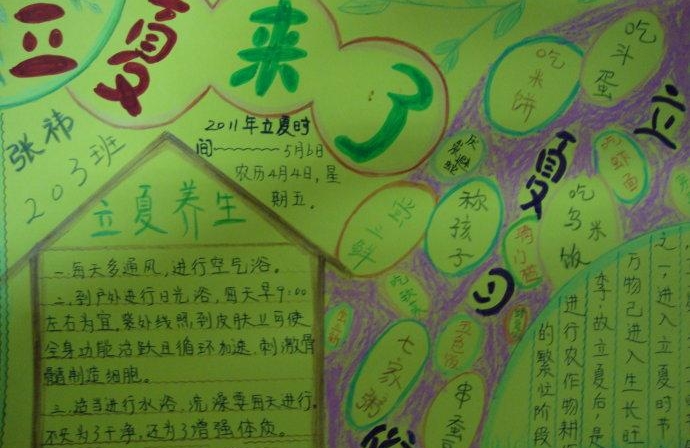 立夏来了
张祎
203班
2011年立夏时
间————5月6日
农历4月4日，星
期五。
立夏养生
一.每天多通风，进行空气浴。
二.到户外进行日光浴，每天早9:00
左右为宜。紫外线照到皮肤上可使
全身功能活跃且循环加速，刺激骨
髓制造细胞。
三.适当进行水浴，洗澡要每天进行。
不只为了干净，还为了增强体质。
立夏习俗
吃斗蛋
吃米饼
吃虾面
吃乌米饭
称孩子
尝三鲜
五色饭
七家粥
串蛋
之一，进入立夏时节
万物已进入生长旺
季，故立夏后，是
进行农作物耕
的繁忙阶段